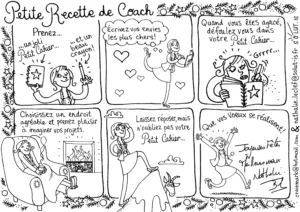 Petite Recette de Coach
Prenez...
...un joli
Petit Cahier...
...et un
beau
crayon!
Écrivez vos envies
les plus chers!
Quand vous êtes agacé,
défoulez vous dans
votre Petit Cahier...
Choisissez un endroit
agréable et prenez plaisir
à imaginer vos projets.
Laissez reposer, mais
n'oubliez pas votre
Petit Cahier...
Que vos Voeux se réalisent...
Nathalie